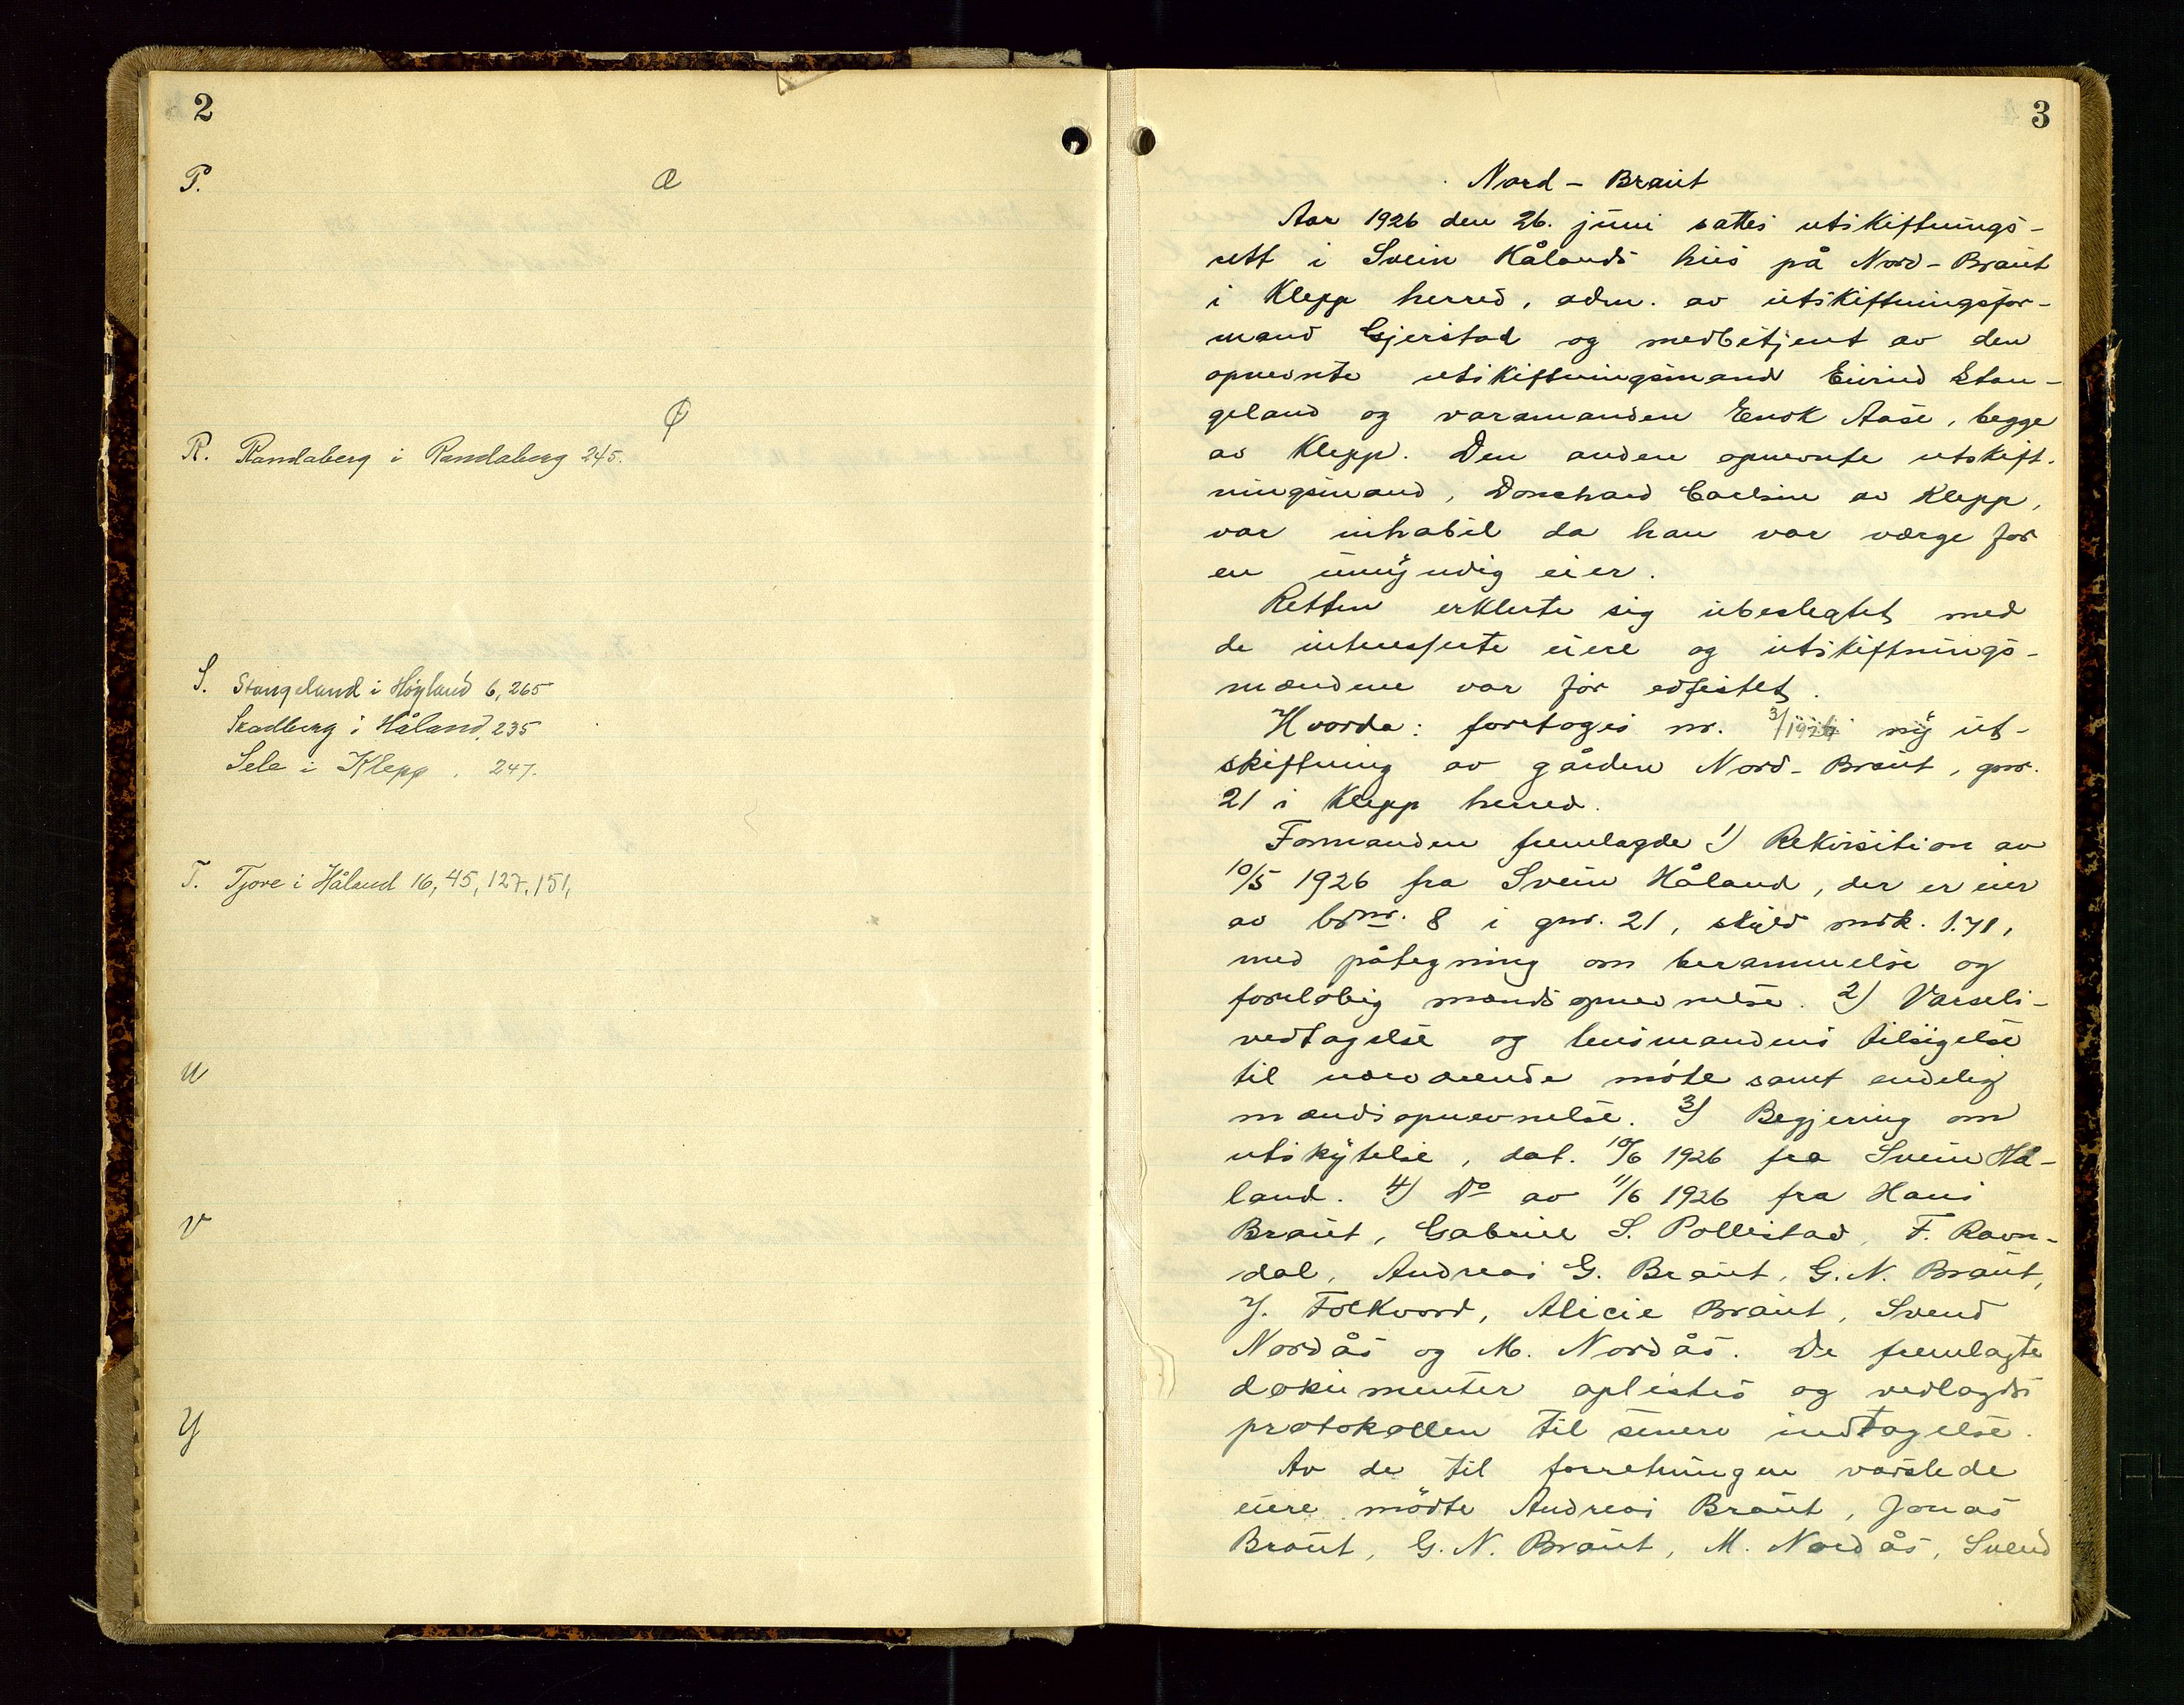 2
P.
Æ
Ø
R. Randaberg i Randaberg 245.
S. Stangeland i Høyland 6, 265
Skadberg i Håland, 235
Sele i Klepp . 247.
T. Tjore i Håland 16, 45, 127, 151,
U
V
Y
3
Nord - Braut
Aar 1926 den 26. juni sattes utskiftnings-
rett i Svein Hålands hus på Nord-Braut
i Klepp herred, adm. av utskiftningsfor-
mand Gjerstad og medbetjent av den
opnevnte utskiftningsmand Eivind Stan-
geland og varamanden Enok Aase, begge
av Klepp. Den anden opnevnte utskift-
ningsmand, av Klepp,
var inhabil da han var værge for
en umyndig eier.
Retten erklerte sig ubeslegtet med
de interesserte eiere og utskiftnings-
mændene var før edfestet.
Hvorda: foretoges nr. 3/1926 ny ut-
skiftning av gården Nord-Braut, gnr.
21 i Klepp herred.
Formanden fremlagde 1) Rekvisition av
10/5 1926 fra Svein Håland, der er eier
av brnr. 8 i gnr. 21, skyld mrk. 1.71,
med påtegning om berammelse og
foreløbig mandsopnevnelse. 2) Varsels-
vedtagelse og lensmandens tilsigelse
til nærværende møte samt endelig
mandsopnevnelse. 3) Begjering om
utskytelse, dat. 10/6 1926 fra Svein Hå-
land. 4) Do av 11/6 1926 fra Hans
Braut, Gabriel S. Pollestad, F. Ravn-
dal, Andreas G. Braut, G. N. Braut,
J. Folkvord, Alicie Braut, Svend
Nordås og M. Nordås. De fremlagte
dokumenter oplestes og vedlagdes
protokollen til senere indtagelse.
Av de til forretningen varslede
eiere mødte Andreas Braut, Jonas
Braut, G. N. Braut, M. Nordås, Svend